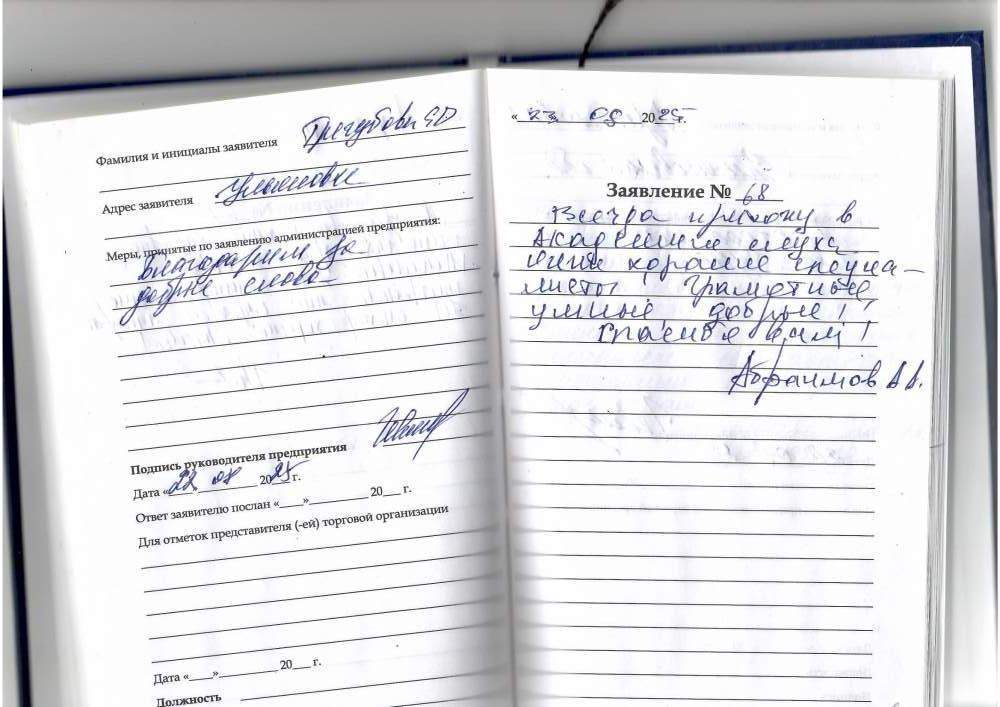 Фамилия и инициалы заявителя Трегубова ЕВ
Адрес заявителя Ульяновка
Меры, принятые по заявлению администрацией предприятия:
Благодарим за
добрые слова
Подпись руководителя предприятия
Дата «22 08 2025 г.
Ответ заявителю послан «___»_________ 20___ г.
Для отметок представителя (-ей) торговой организации
Дата «___»_________ 20___ г.
Должность
« 23 » 08 2025 г.
Заявление № 68
Всегда прихожу в
Академию слуха
очень хорошие специа-
листы грамотные
умные, добрые!
Спасибо Вам!
Абраимов А А.